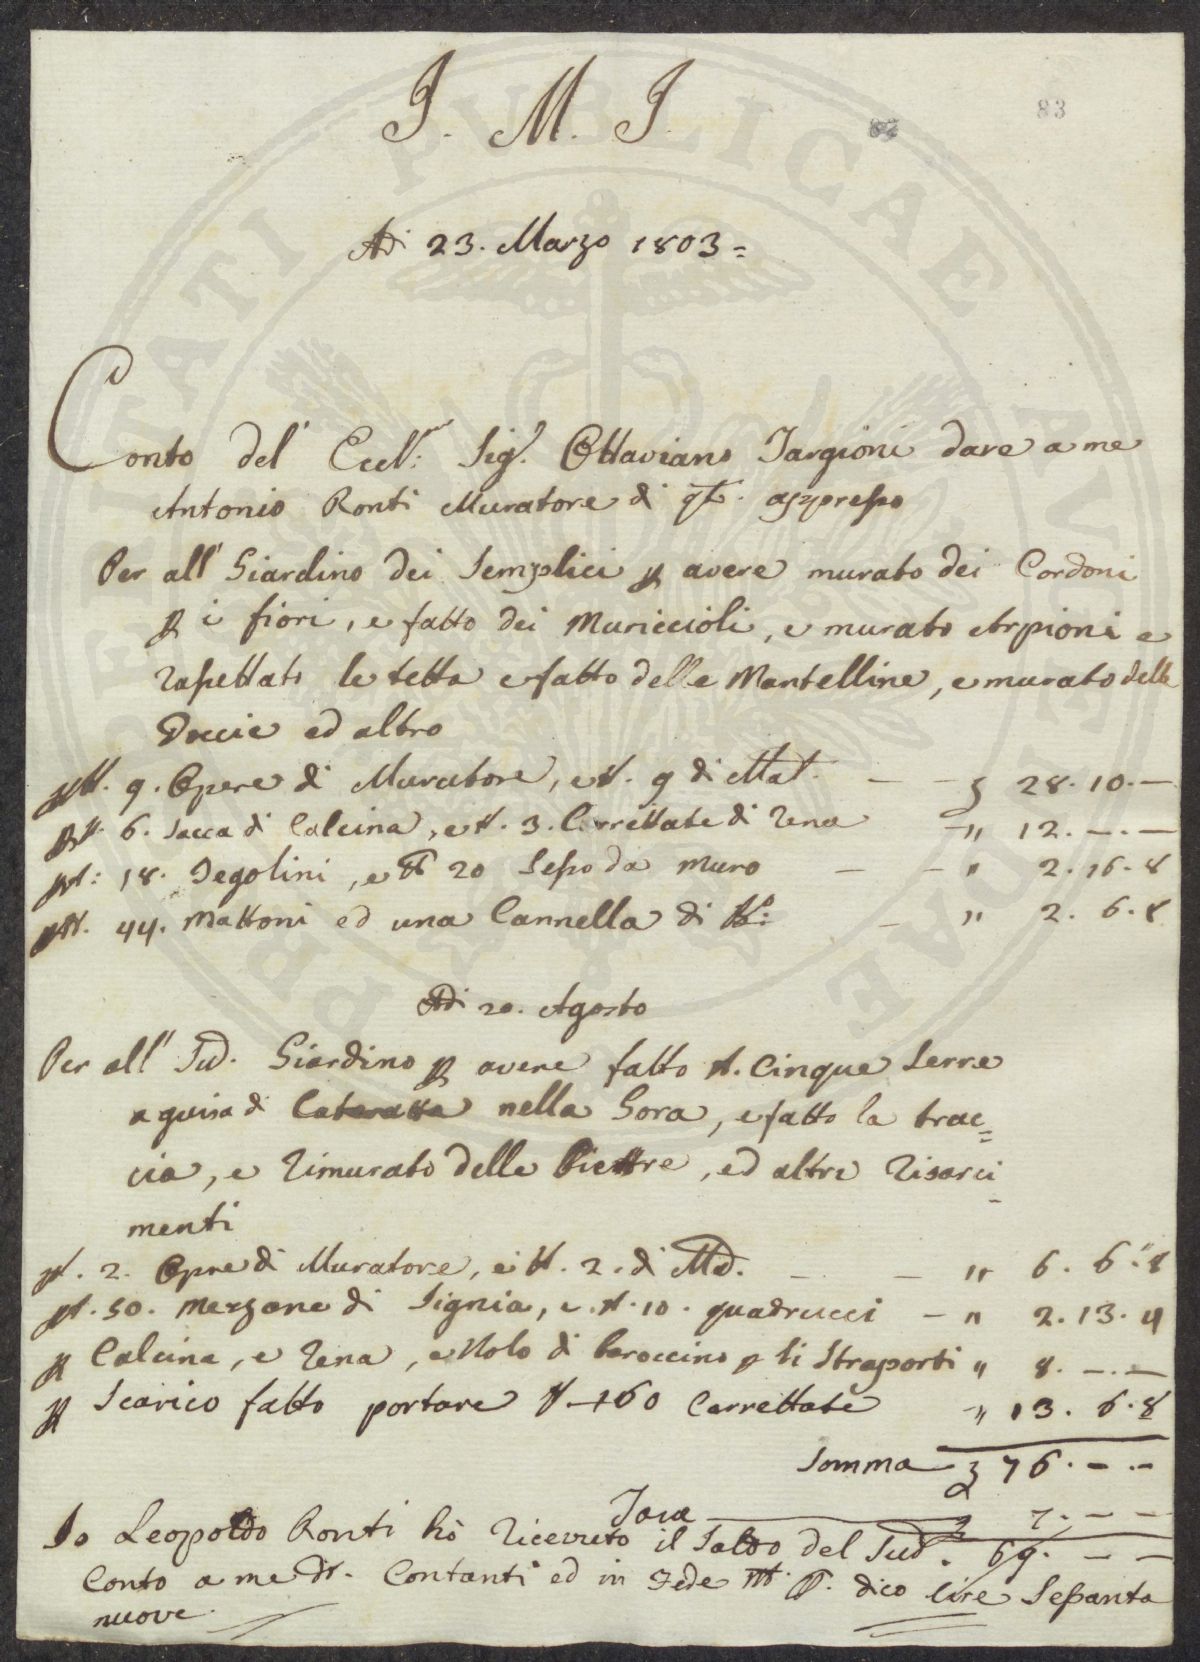 83
J. M. J.
Adi 23. Marzo 1803=
Conto del Eccl: Sig. Ottaviano Targioni dare a me
Antonio Ronti Muratore di qto. appresso
Per all' Giardino dei Semplici p avere murato dei Cordoni
p i fiori, e fatto dei Muriccioli, e murato Arpioni e
rasettato le tetta e fatto delle Mantelline, e murato delle
Doccie ed altro
p N. 9. Opere di Muratore, e N. 9 di Mal. — — £ 28. 10. —
p N. 6. Sacca di Calcina, e N. 3. Carrettate di rena — " 12. —. —
p N: 18. Tegolini, e N 20 Sesto da muro — — " 2. 16. 8
p N. 44. Mattoni ed una Cannella di — " 2. 6. 8
Adi 20. Agosto
Per all' Sud. Giardino p avere fatto N. Cinque Serre
a guisa di Cateratte nella Gora, e fatto la trac=
cia, e rimurato delle Piettre, ed altri risarci
menti
p N. 2. Opre di Muratore, e N. 2. di — — " 6. 6. 8
p N. 50. Mezzane di Signia, e N. 10. quadrucci — " 2. 13. 4
p Calcina, e rena, e Nolo di baroccino p li Straporti " 8. —. —
p Scarico fatto portare N. 160 Carrettate " 13. 6. 8
Somma £ 76. —. —
Tara £ 7. — —
Io Leopoldo Ronti hò ricevuto il Saldo del Sud. 69. — —
Conto a me dt. Contanti ed in fede dico lire Sesanta
nuove.
PUBLICAE